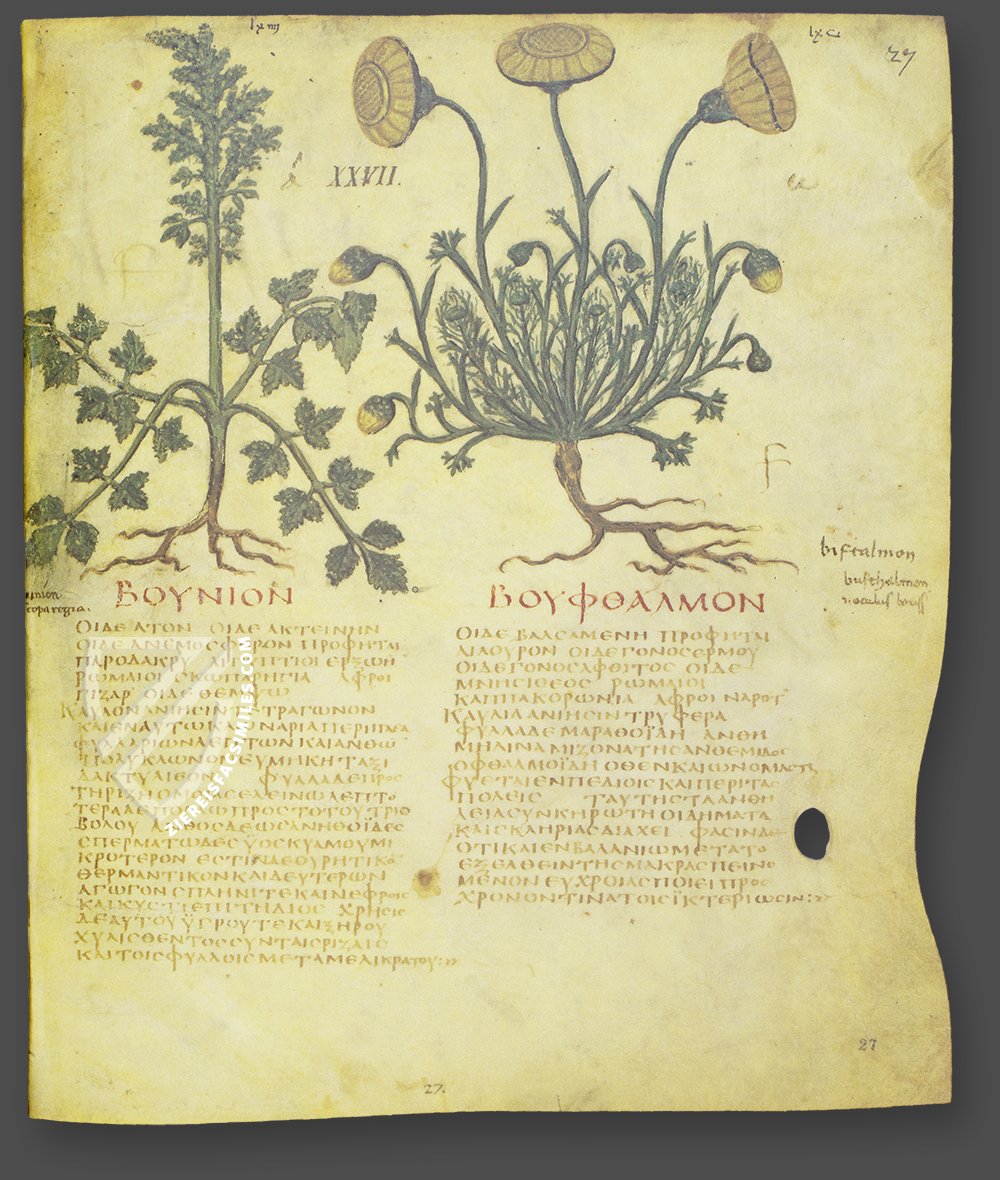 lxm
lxc
27
XXVII.
biftalmon
busthalmon
noculus bouis
ΒΟΥΝΙΟΝ
ΟΙΔΕ ΑΤΟΝ ΟΙΔΕ ΑΚΤΕΙΝΗΝ
ΟΙΔΕ ΑΝΕΜΟΣΦΟΡΟΝ ΠΡΟΦΗΤΑΙ
ΠΑΡΟΔΑΚΡΥ ΑΙΓΥΠΤΙΟΙ ΕΡΞΩΗ
ΡΩΜΑΙΟΙ ΣΚΩΠΑΡΗΓΙΑ ΑΦΡΟΙ
ΠΙΖΑΡ ΟΙΔΕ ΘΕΜ
ΚΑΥΛΟΝ ΑΝΙΗΣΙΝ ΤΕΤΡΑΓΩΝΟΝ
ΠΟΛΥΚΛΩΝΟΝ ΕΥΜΗΚΗ ΤΑΞΙ
ΔΑΚΤΥΛΙΕΟΝ ΦΥΛΛΑ ΔΕ ΠΡΟΣ
ΤΗ ΡΙΖΗ ΟΜΟΙΑ ΣΕΛΕΙΝΩ ΛΕΠΤΟ
ΤΕΡΑ ΔΕ ΠΟΛΛΩ ΠΡΟΣ ΤΟ ΤΟΥ ΤΡΙΟ
ΒΟΛΟΥ ΑΝΘΟΣ ΔΕ ΩΣ ΑΝΗΘΟΙΔΕΣ
ΣΠΕΡΜΑΤΩΔΕΣ ΥΟΣΚΥΑΜΟΥ ΜΙ
ΚΡΟΤΕΡΟΝ ΕΣΤΙΝ ΔΕ ΟΥΡΗΤΙΚΟ
ΘΕΡΜΑΝΤΙΚΟΝ ΚΑΙ ΔΕΥΤΕΡΩΝ
ΑΓΩΓΟΝ ΣΠΛΗΝΙ ΤΕ ΚΑΙ ΝΕΦΡΟΙΣ
ΚΑΙ ΚΥΣΤΙ ΕΠΙΤΗΔΙΟΣ ΧΡΗΣΙΣ
ΔΕ ΑΥΤΟΥ ΥΓΡΟΥ ΤΕ ΚΑΙ ΞΗΡΟΥ
ΧΥΛΙΣΘΕΝΤΟΣ ΣΥΝ ΤΑΙΣ ΡΙΖΑΙΣ
ΚΑΙ ΤΟΙΣ ΦΥΛΛΟΙΣ ΜΕΤΑ ΜΕΛΙΚΡΑΤΟΥ:
ΒΟΥΦΘΑΛΜΟΝ
ΟΙΔΕ ΒΑΛΣΑΜΕΝΗ ΠΡΟΦΗΤΑΙ
ΑΙΛΟΥΡΟΝ ΟΙΔΕ ΓΟΝΟΣ ΕΡΜΟΥ
ΟΙΔΕ ΓΟΝΟΣ ΑΦΘΙΤΟΣ ΟΙΔΕ
ΜΝΗΣΙΘΕΟΣ ΡΩΜΑΙΟΙ
ΚΑΠΠΑ ΚΟΡΩΝΙΑ ΑΦΡΟΙ ΝΑΡΟΤ
ΚΑΥΛΙΑ ΑΝΙΗΣΙΝ ΤΡΥΦΕΡΑ
ΦΥΛΛΑ ΔΕ ΜΑΡΑΘΟΪΔΗ ΑΝΘΗ
ΜΗΛΙΝΑ ΜΙΖΟΝΑ ΤΗΣ ΑΝΘΕΜΙΔΟΣ
ΟΦΘΑΛΜΟΪΔΗ ΟΘΕΝ ΚΑΙ ΩΝΟΜΑΣΤΑΙ
ΦΥΕΤΑΙ ΕΝ ΠΕΔΙΟΙΣ ΚΑΙ ΠΕΡΙ ΤΑΣ
ΠΟΛΕΙΣ ΤΑΥΤΗΣ ΤΑ ΑΝΘΗ
ΛΕΙΑ ΣΥΝ ΚΗΡΩΤΗ ΟΙΔΗΜΑΤΑ
ΚΑΙ ΣΚΛΗΡΙΑΣ ΔΙΑΧΕΙ ΦΑΣΙΝ ΔΕ
ΟΤΙ ΚΑΙ ΕΝ ΒΑΛΑΝΙΩ ΜΕΤΑ ΤΟ
ΕΞΕΛΘΕΙΝ ΤΗΣ ΜΑΚΡΑΣ ΠΕΙΝΟ
ΜΕΝΟΝ ΕΥΧΡΟΙΑΣ ΠΟΙΕΙ ΠΡΟΣ
ΧΡΟΝΟΝ ΤΙΝΑ ΤΟΙΣ ΪΚΤΕΡΙΩΣΙΝ:
ZIEREISFACSIMILES.COM
27
27.